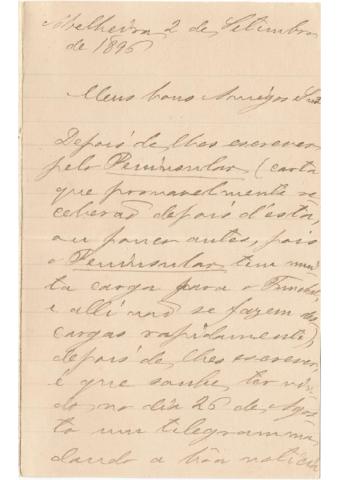 Abelheira 2 de Setembro
de 1896
Meus bons Amigos e Snrs
Depois de lhes escrever
pelo Peninsular (carta
que provavelmente re-
ceberão depois d'esta,
ou pouco antes, pois
o Peninsular tem mui-
ta carga para o Funchal,
e alli não se fazem des
cargas rapidamente)
depois de lhes escrever,
é que soube ter vin-
do no dia 26 de Agos-
to um telegramma
dando a bôa noticia